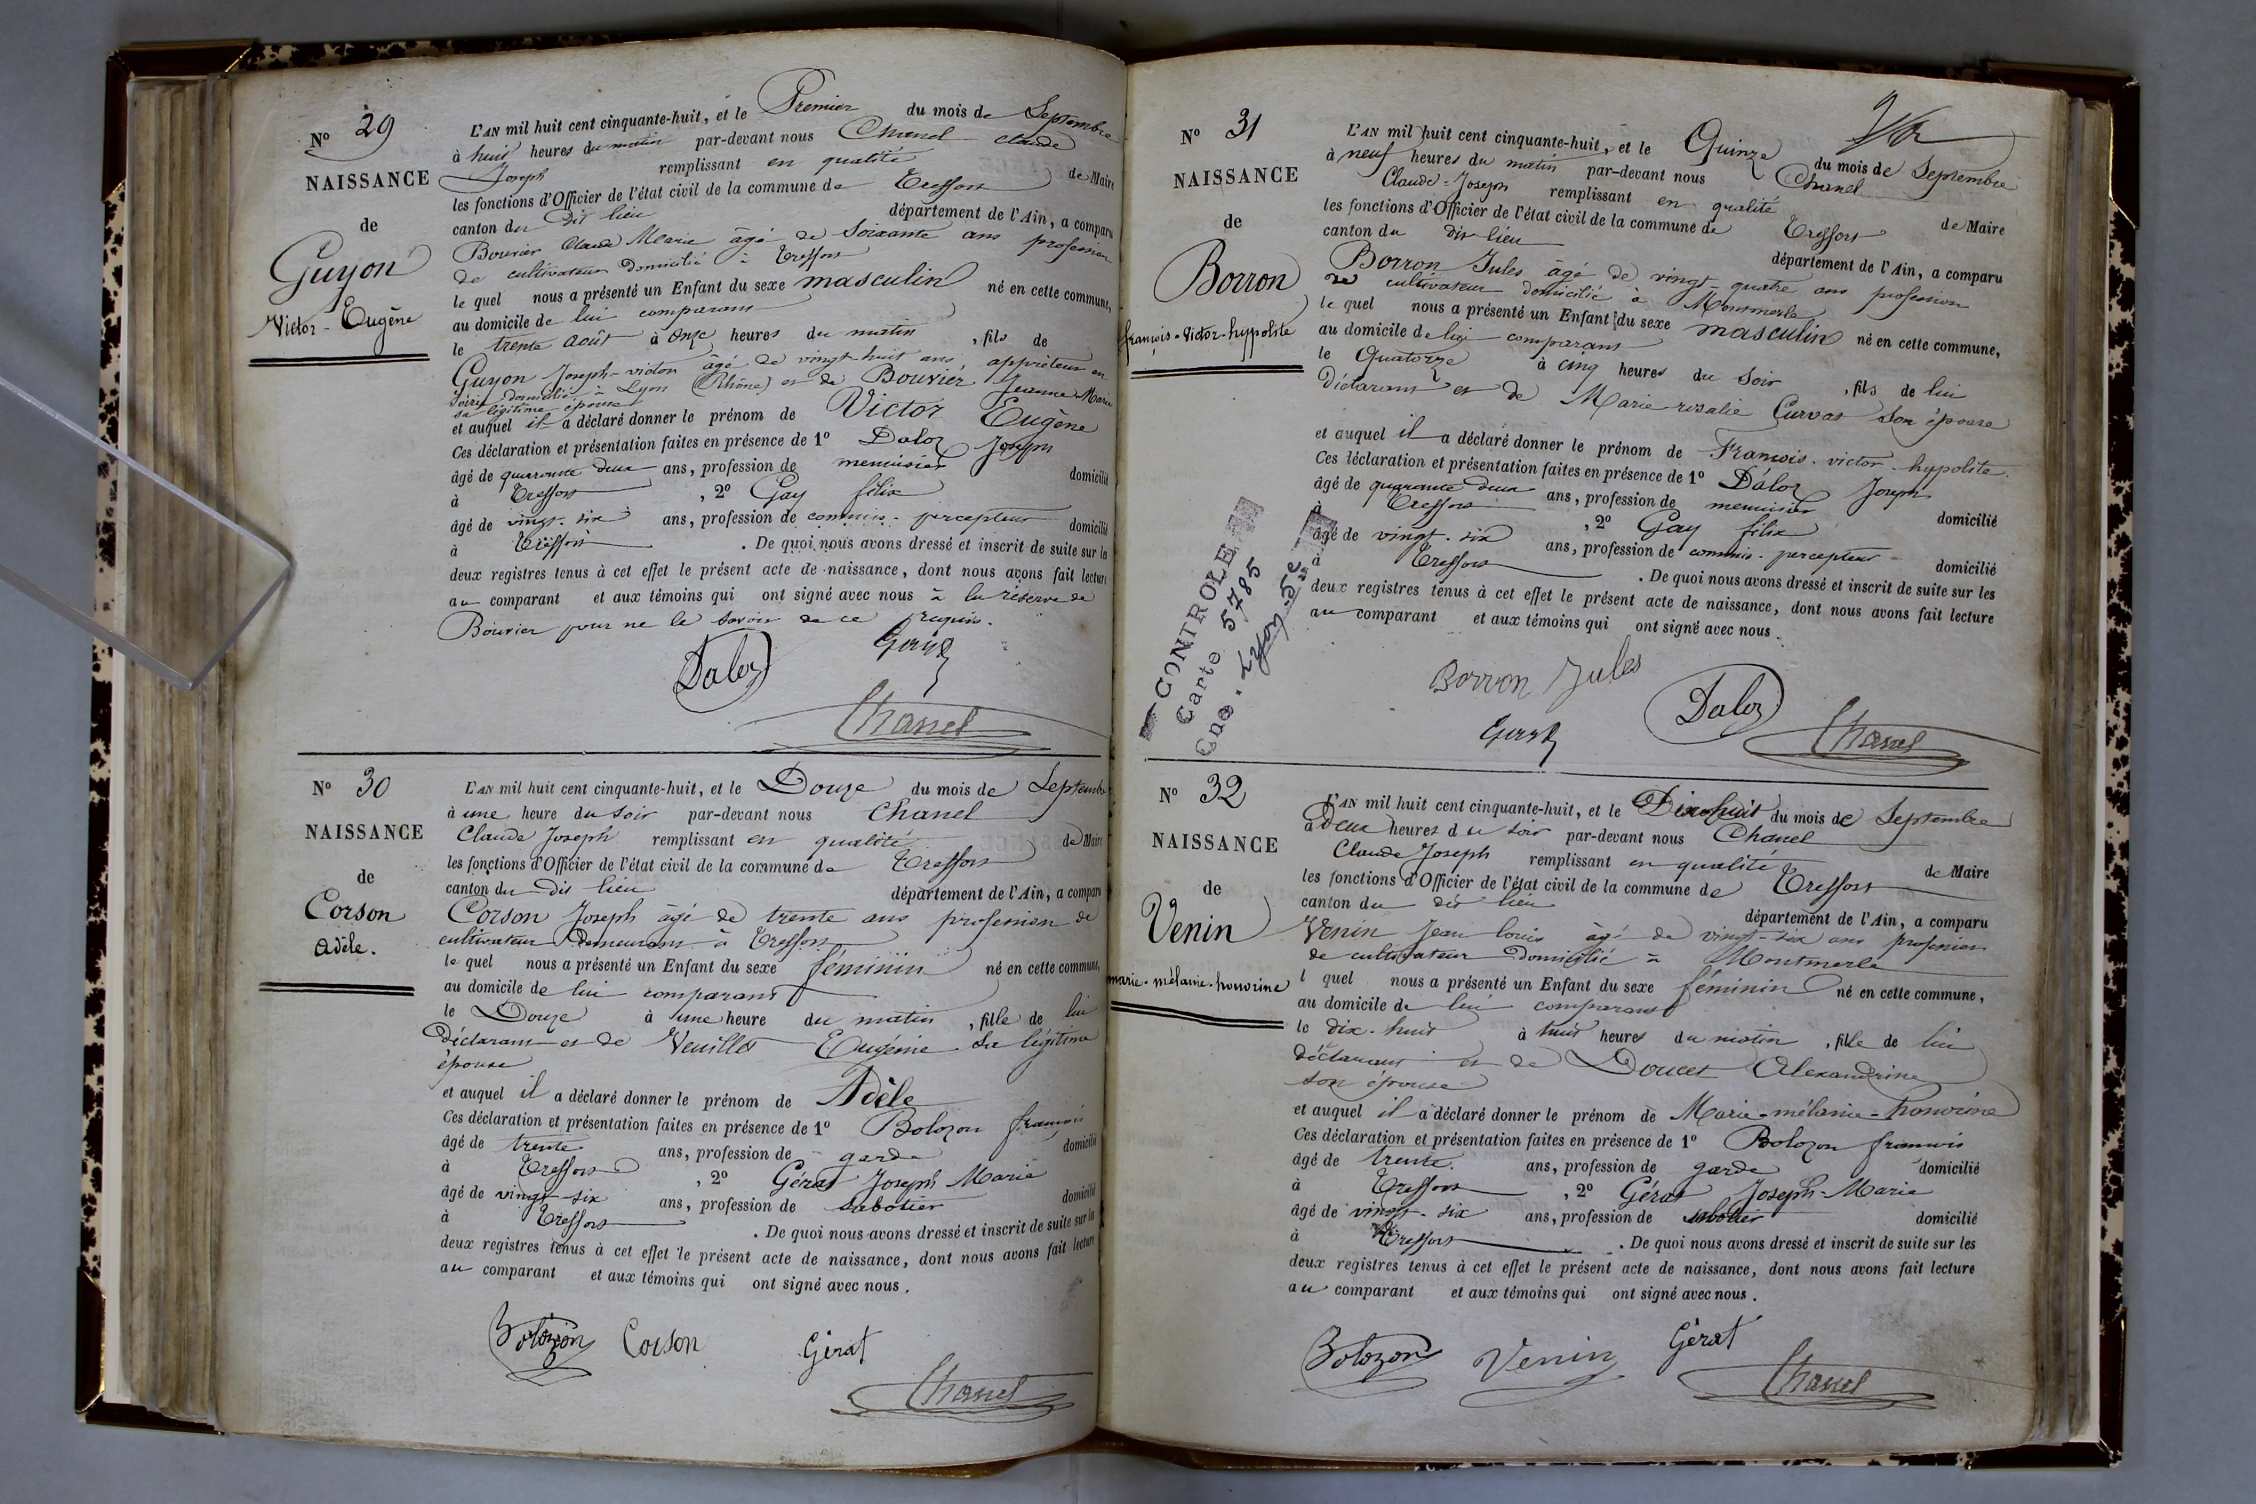 N° 29
NAISSANCE
de
Guyon
Victor - Eugène
L'AN mil huit cent cinquante-huit, et le Premier du mois de Septembre
à huit heures du matin par-devant nous Chanel claude
Joseph remplissant en qualité de Maire
les fonctions d'Officier de l'état civil de la commune de Treffort
canton du dit lieu département de l'Ain, a comparu
Bouvier Claude Marie âgé de soixante ans profession
de cultivateur domicilié à Treffort
le quel nous a présenté un Enfant du sexe masculin né en cette commune,
au domicile de lui comparant
le trente août à onze heures du matin, fils de
Guyon Joseph-victor âgé de vingt huit ans, apprêteur en
soirie domicilié à Lyon (Rhône) et de Bouvier Jeanne Marie
sa légitime épouse
et auquel il a déclaré donner le prénom de Victor Eugène
Ces déclaration et présentation faites en présence de 1° Daloz Joseph
âgé de quarante deux ans, profession de menuisier domicilié
à Treffort, 2° Gay félix
âgé de vingt-six ans, profession de commis-percepteur domicilié
à Treffort. De quoi nous avons dressé et inscrit de suite sur les
deux registres tenus à cet effet le présent acte de naissance, dont nous avons fait lecture
au comparant et aux témoins qui ont signé avec nous à la réserve de
Bouvier pour ne le savoir de ce requis.
Daloz
Chanel
N° 30
NAISSANCE
de
Corson
Adèle.
L'AN mil huit cent cinquante-huit, et le Douze du mois de Septembre
à une heure du soir par-devant nous Chanel
Claude Joseph remplissant en qualité de Maire
les fonctions d'Officier de l'état civil de la commune de Treffort
canton du dit lieu département de l'Ain, a comparu
Corson Joseph âgé de trente ans profession de
cultivateur demeurant à Treffort
le quel nous a présenté un Enfant du sexe féminin né en cette commune,
au domicile de lui comparant
le Douze à une heure du matin, fille de lui
déclarant et de Veuillet Eugénie sa légitime
épouse
et auquel il a déclaré donner le prénom de Adèle
Ces déclaration et présentation faites en présence de 1° Bolozon françois
âgé de trente ans, profession de garde domicilié
à Treffort, 2° Gérat Joseph Marie
âgé de vingt-six ans, profession de sabotier domicilié
à Treffort. De quoi nous avons dressé et inscrit de suite sur les
deux registres tenus à cet effet le présent acte de naissance, dont nous avons fait lecture
au comparant et aux témoins qui ont signé avec nous.
Bolozon Corson Gérat
Chanel
N° 31
NAISSANCE
de
Borron
françois-victor-hyppolite
CONTROLE
Carte 5785
Cne. Lyon. 5e
L'AN mil huit cent cinquante-huit, et le Quinze du mois de Septembre
à neuf heures du matin par-devant nous Chanel
Claude-Joseph remplissant en qualité de Maire
les fonctions d'Officier de l'état civil de la commune de Treffort
canton du dit lieu département de l'Ain, a comparu
Borron Jules âgé de vingt-quatre ans profession
de cultivateur domicilié à Montmerle
le quel nous a présenté un Enfant du sexe masculin né en cette commune,
au domicile de lui comparant
le Quatorze à cinq heures du soir, fils de lui
déclarant et de Marie rosalie Curvat son épouse
et auquel il a déclaré donner le prénom de François-victor-hyppolite.
Ces déclaration et présentation faites en présence de 1° Daloz Joseph
âgé de quarante deux ans, profession de menuisier domicilié
à Treffort, 2° Gay félix
âgé de vingt-six ans, profession de commis-percepteur domicilié
à Treffort. De quoi nous avons dressé et inscrit de suite sur les
deux registres tenus à cet effet le présent acte de naissance, dont nous avons fait lecture
au comparant et aux témoins qui ont signé avec nous.
Borron Jules
Daloz
Chanel
N° 32
NAISSANCE
de
Venin
marie-mélanie-honorine
L'AN mil huit cent cinquante-huit, et le Dix huit du mois de Septembre
à Deux heures du soir par-devant nous Chanel
Claude Joseph remplissant en qualité de Maire
les fonctions d'Officier de l'état civil de la commune de Treffort
canton du dit lieu département de l'Ain, a comparu
Venin Jean louis âgé de vingt-six ans profession
de cultivateur domicilié à Montmerle
l quel nous a présenté un Enfant du sexe féminin né en cette commune,
au domicile de lui comparant
le dix-huit à huit heures du matin, fille de lui
déclarant et de Doucet Alexandrine
son épouse
et auquel il a déclaré donner le prénom de Marie-mélanie-honorine
Ces déclaration et présentation faites en présence de 1° Bolozon francois
âgé de trente. ans, profession de garde domicilié
à Treffort, 2° Gérat Joseph-Marie
âgé de vingt-six ans, profession de sabotier domicilié
à Treffort. De quoi nous avons dressé et inscrit de suite sur les
deux registres tenus à cet effet le présent acte de naissance, dont nous avons fait lecture
au comparant et aux témoins qui ont signé avec nous.
Bolozon Venin Gérat
Chanel